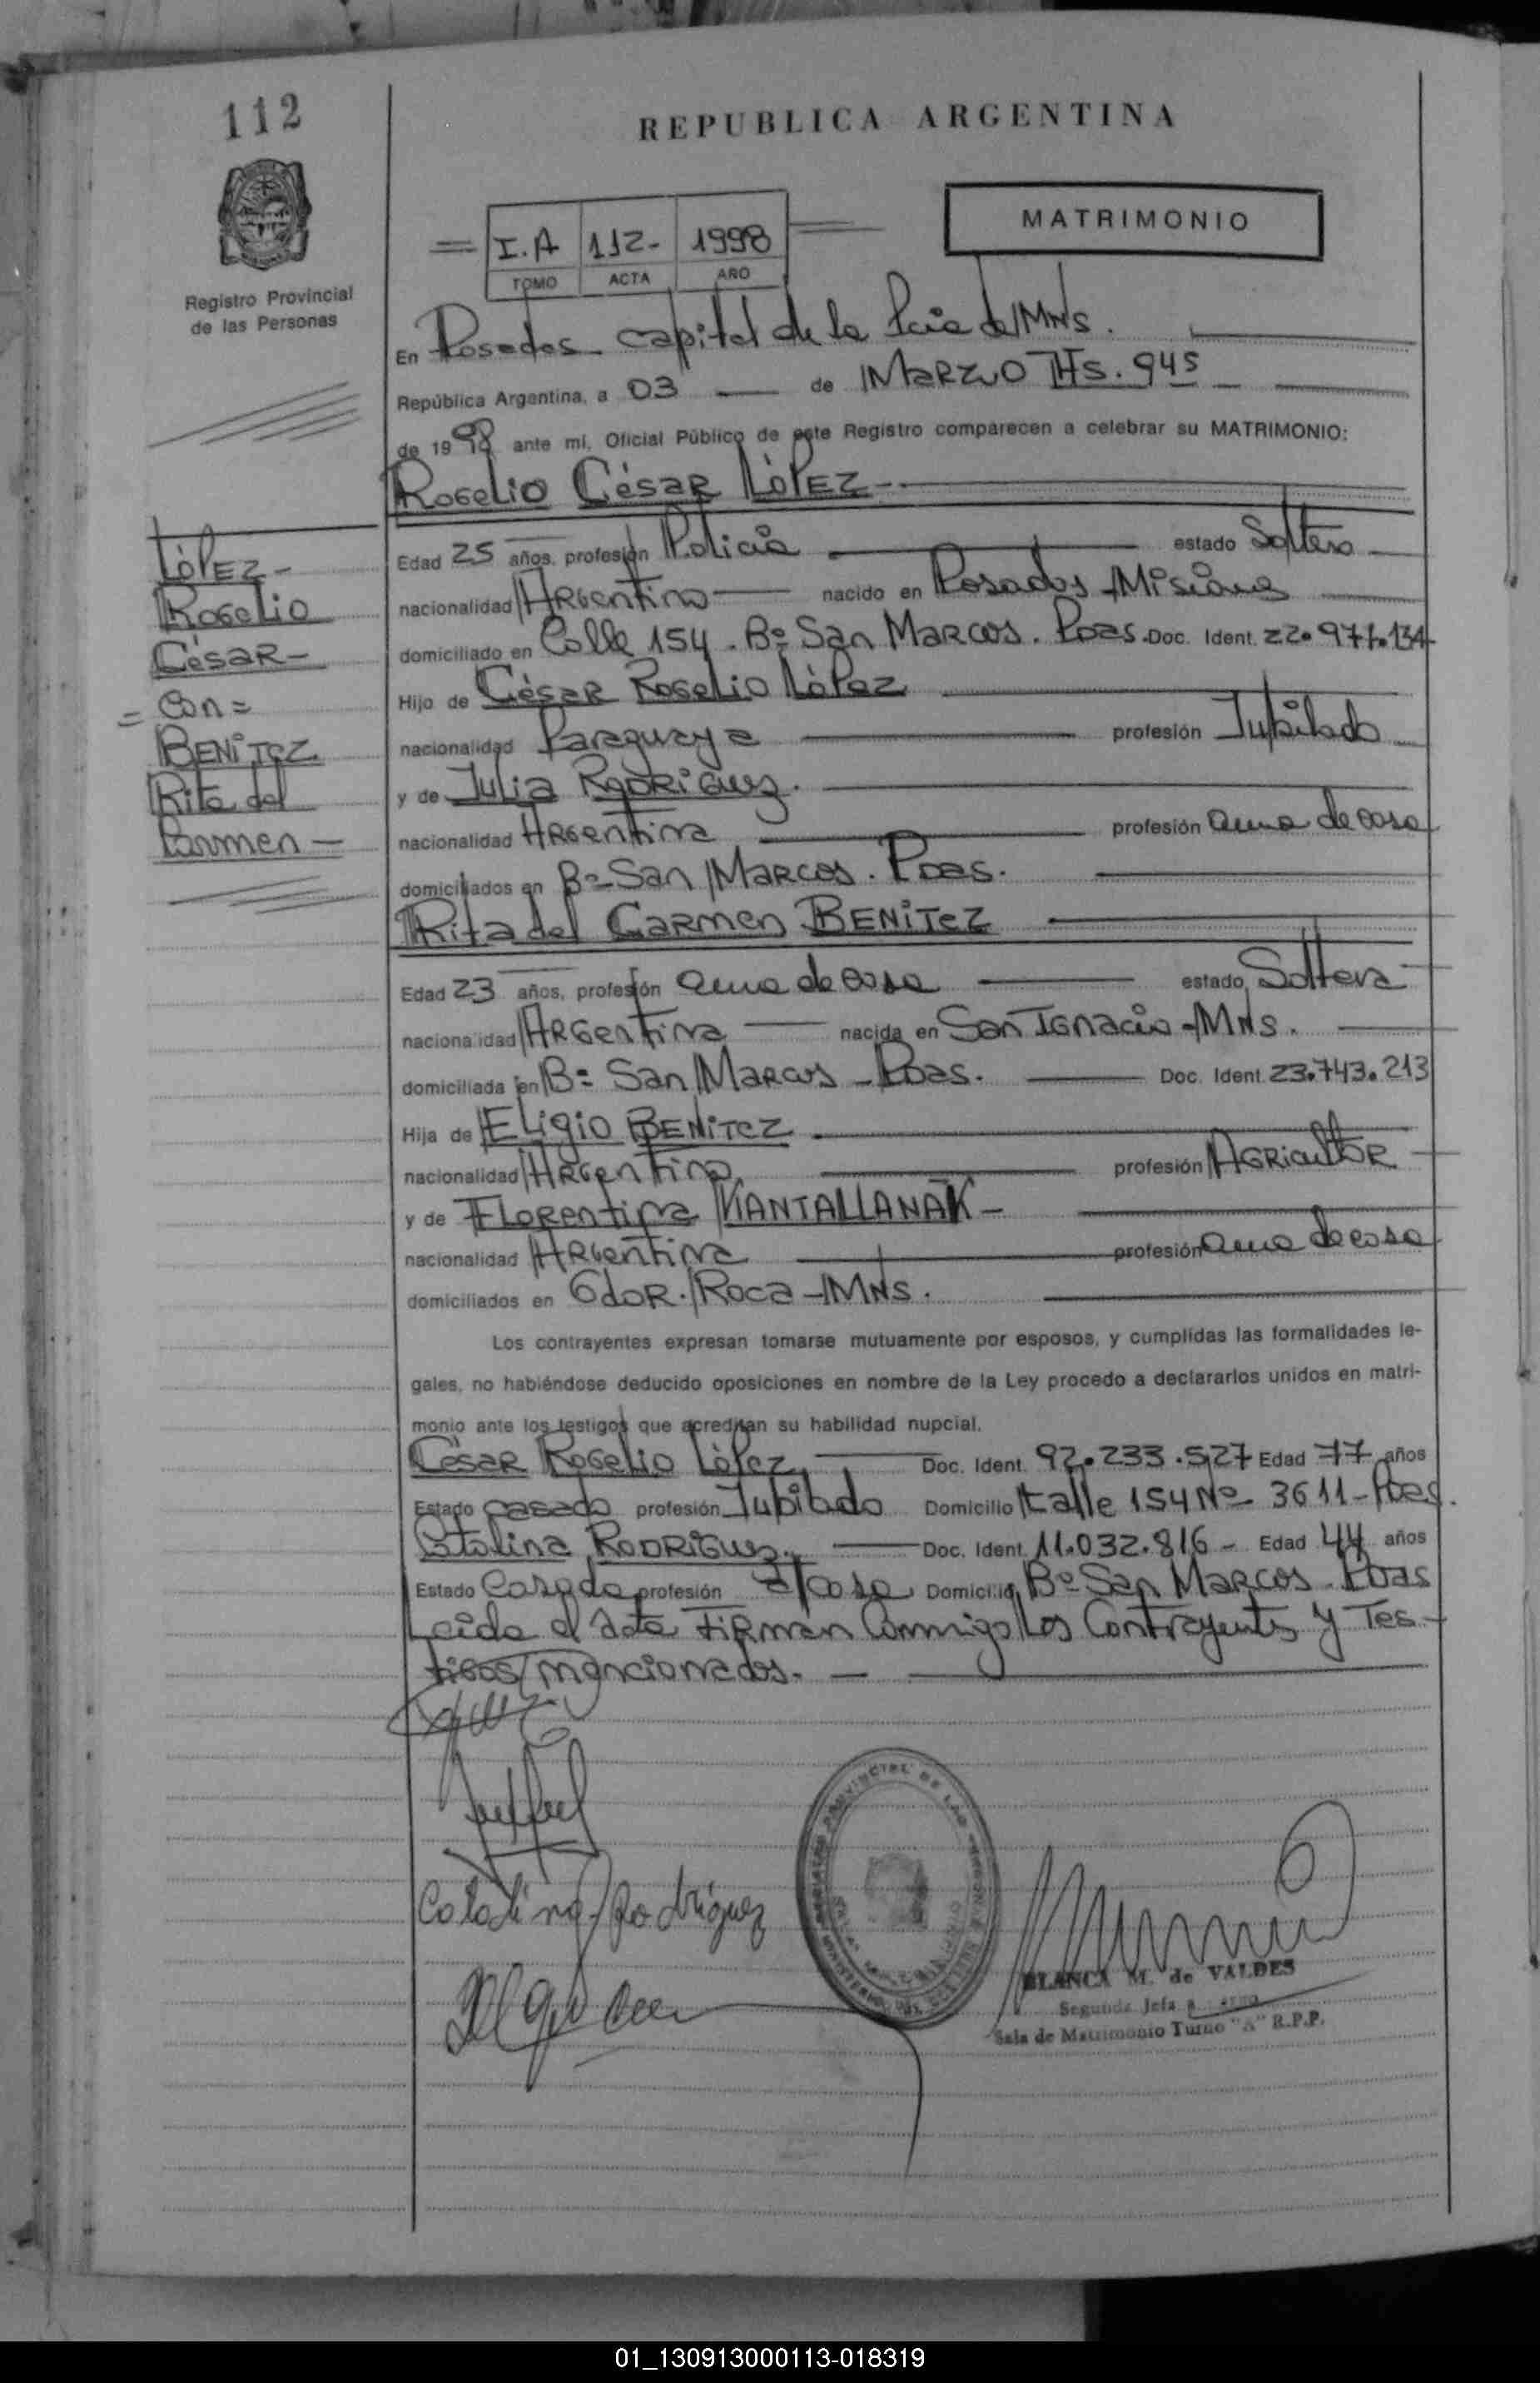 112
REPUBLICA ARGENTINA
I.A 112- 1998
TOMO ACTA AÑO
MATRIMONIO
Registro Provincial
de las Personas
En Posadas capital de la Pcia de Mns.
República Argentina, a 03 de MARZO Hs. 945
de 1998 ante mí, Oficial Público de este Registro comparecen a celebrar su MATRIMONIO:
Rogelio César LÒPEZ
LÒPEZ -
Rogelio
César -
= Con =
BENITEZ
Rita del
Carmen -
Edad 25 años, profesión Policia estado Soltero
nacionalidad Argentino nacido en Posadas - Misiones
domiciliado en Calle 154 - Bº San Marcos. Pdas. Doc. Ident. 22.971.134
Hijo de César Rogelio LòPez
nacionalidad Paraguaya profesión Jubilado
y de Julia Rodriguez.
nacionalidad Argentina profesión ama de casa
domiciliados en Bº San Marcos. Pdas.
Rita del Carmen BENITEZ
Edad 23 años, profesión ama de casa estado Soltera
nacionalidad Argentina nacida en San Ignacio - Mns.
domiciliada en Bº San Marcos - Pdas. Doc. Ident. 23.743.213
Hija de Eligio BENITEZ
nacionalidad Argentino profesión Agricultor
y de Florentina KANTALLANAK -
nacionalidad Argentina profesión ama de casa
domiciliados en Gdor. Roca - Mns.
Los contrayentes expresan tomarse mutuamente por esposos, y cumplidas las formalidades le-
gales, no habiéndose deducido oposiciones en nombre de la Ley procedo a declararlos unidos en matri-
monio ante los testigos que acreditan su habilidad nupcial.
César Rogelio LòPez Doc. Ident. 92.233.527 Edad 77 años
Estado casado profesión Jubilado Domicilio Calle 154 Nº 3611 - Pdas.
Catalina Rodriguez. Doc. Ident. 11.032.816 - Edad 44 años
Estado Casada profesión a/casa Domicilio Bº San Marcos - Pdas
Leida el acta Firman Conmigo Los Contrayentes y Tes-
tigos mencionados.
Catalina Rodríguez
BLANCA M. de VALDES
Segunda Jefa
Sala de Matrimonio Turno "A" R.P.P.
01_130913000113-018319